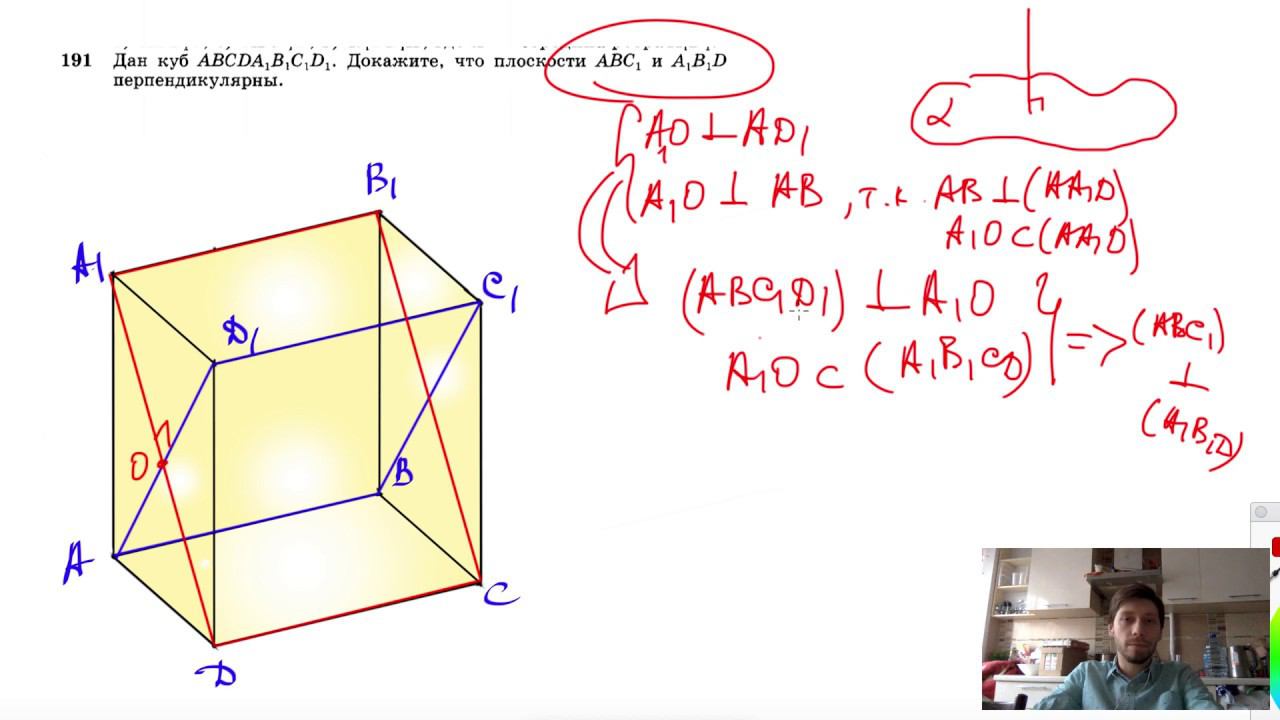 191 Дан куб ABCDA₁B₁C₁D₁. Докажите, что плоскости ABC₁ и A₁B₁D
перпендикулярны.
A₁O ⊥ AD₁
A₁O ⊥ AB, т.к. AB ⊥ (AA₁D)
A₁O ⊂ (AA₁D)
(ABC₁D₁) ⊥ A₁O
A₁O ⊂ (A₁B₁CD)
=> (ABC₁)
⊥
(A₁B₁D)
α
B₁
A₁
C₁
D₁
O
B
A
C
D